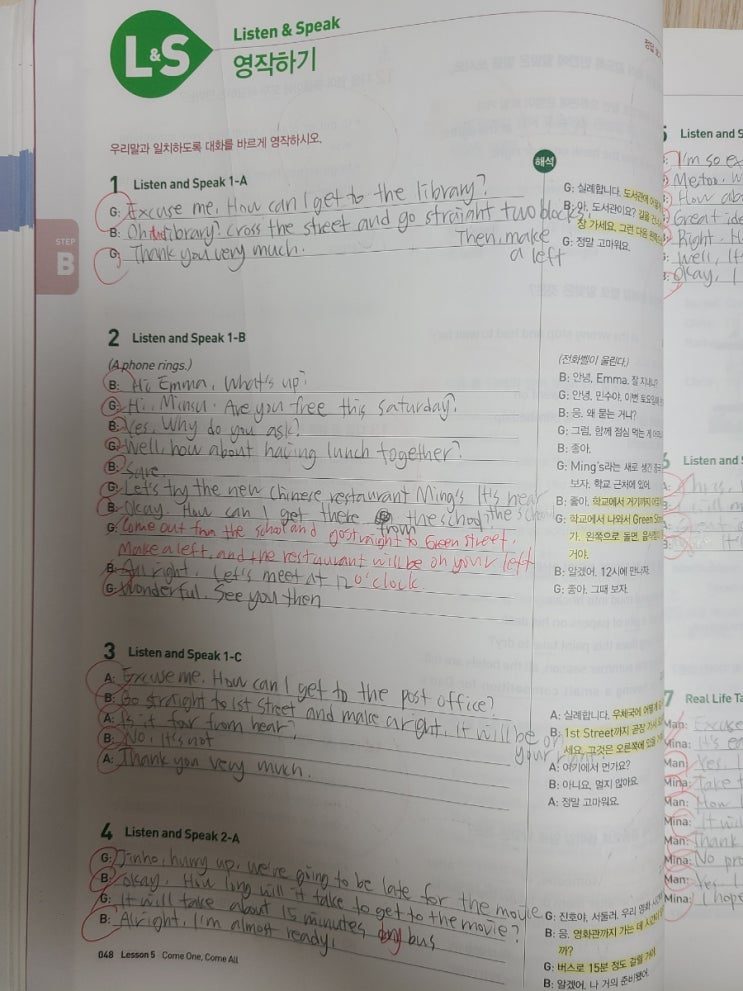 L&S
Listen & Speak
영작하기
우리말과 일치하도록 대화를 바르게 영작하시오.
해석
STEP
B
1 Listen and Speak 1-A
G: Excuse me. How can I get to the library?
B: Oh the library? cross the street and go straight two blocks.
Then, make
a left
G: Thank you very much.
G: 실례합니다. 도서관에
B: 아, 도서관이요? 길을
장 가세요. 그런 다음
G: 정말 고마워요.
2 Listen and Speak 1-B
(A phone rings.)
B: Hi, Emma, What's up?
G: Hi, Minsu. Are you free this saturday?
B: Yes, Why do you ask?
G: Well, how about having lunch together?
B: Sure.
G: Let's try the new chinese restaurant Ming's It's near
the school
B: Okay. How can I get there from the school
G: Come out from the school and go straight to Green street.
Make a left, and the restaurant will be on your left
B: All right, Let's meet at 12 o'clock.
G: Wonderful, See you then
(전화벨이 울린다.)
B: 안녕, Emma. 잘 지내니?
G: 안녕, 민수야, 이번 토요일에
B: 응, 왜 묻는 거니?
G: 그럼, 함께 점심 먹는 게
B: 좋아.
G: Ming's라는 새로 생긴
보자. 학교 근처에 있어.
B: 좋아. 학교에서 거기까지
G: 학교에서 나와서 Green
가. 왼쪽으로 돌면
거야.
B: 알겠어. 12시에 만나자.
G: 좋아. 그때 보자.
3 Listen and Speak 1-C
A: Excuse me. How can I get to the post office?
B: Go straight to 1st Street and make a right. It will be on
your right
A: Is it far from hear?
B: No, it's not
A: Thank you very much.
A: 실례합니다. 우체국에
B: 1st Street까지 곧장
세요. 그것은 오른쪽에 있을
A: 여기에서 먼가요?
B: 아니요, 멀지 않아요.
A: 정말 고마워요.
4 Listen and Speak 2-A
G: Jinho, hurry up. we're going to be late for the movie
B: okay. How long will it take to get to the movie?
G: It will take about 15 minutes by bus
B: Alright, I'm almost ready.
G: 진호야, 서둘러. 우리 영화
B: 응. 영화관까지 가는 데
까?
G: 버스로 15분 정도 걸릴 거야.
B: 알겠어, 나 거의 준비됐어.
048 Lesson 5 Come One, Come All
5 Listen and S
I'm so
How
Great
Right.
Well, It
Okay, I
6 Listen and
7 Real Life Ta
Man: Excuse
Mina: It's
Man: Yes, I
Mina: Take
Man: How
Mina: It will
Man: Thank
Mina: No
Man: Yes I
Mina: I hope